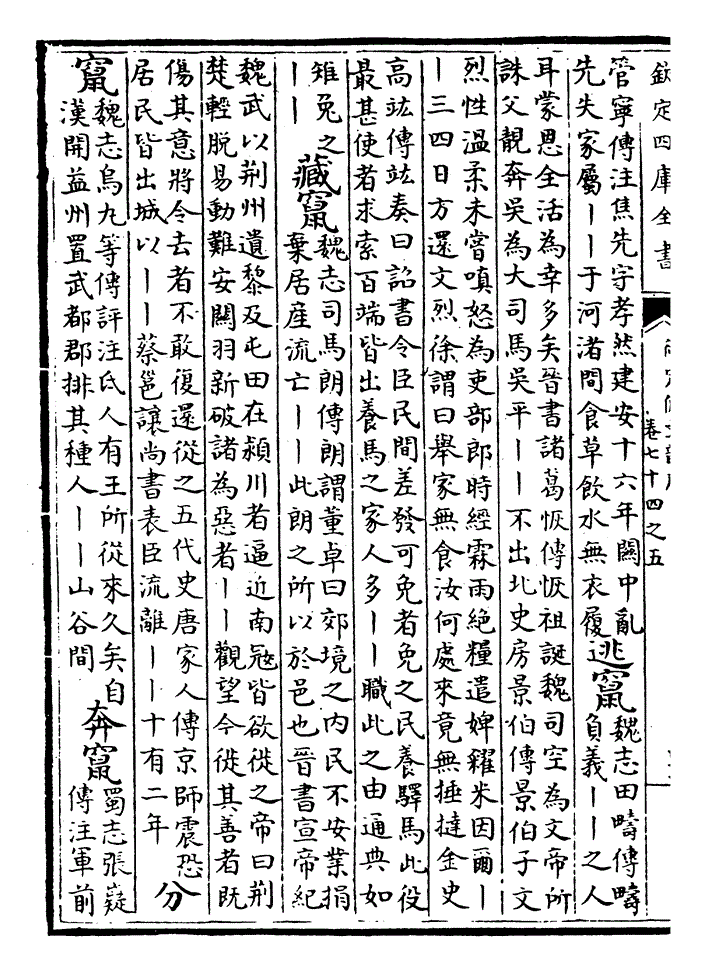 欽定四庫全書
卷七十四之五
管寧傳注焦先字孝然建安十六年關中亂
先失家屬丨丨于河渚間食草飲水無衣履
逃竄
魏志田疇傳疇
負義丨丨之人
耳蒙恩全活為幸多矣晉書諸葛恢傳恢祖誕魏司空為文帝所
誅父靚奔吳為大司馬吳平丨丨不出北史房景伯傳景伯子文
烈性溫柔未嘗嗔怒為吏部郎時經霖雨絕糧遣婢糴米因爾丨
丨三四日方還文烈徐謂曰舉家無食汝何處來竟無捶撻金史
高竑傳竑奏曰詔書令臣民間差發可免者免之民養驛馬此役
最甚使者求索百端皆出養馬之家人多丨丨職此之由通典如
雉兔之
丨丨
藏竄
魏志司馬朗傳朗謂董卓曰郊境之内民不安業捐
棄居產流亡丨丨此朗之所以於邑也晉書宣帝紀
魏武以荆州遺黎及屯田在潁川者逼近南寇皆欲徙之帝曰荆
楚輕脱易動難安關羽新破諸為惡者丨丨觀望今徙其善者既
傷其意將令去者不敢復還從之五代史唐家人傳京師震恐
居民皆出城以丨丨蔡邕讓尚書表臣流離丨丨十有二年
分
竄
魏志烏九等傳評注氐人有王所從來久矣自
漢開益州置武都郡排其種人丨丨山谷間
奔竄
蜀志張嶷
傳注軍前